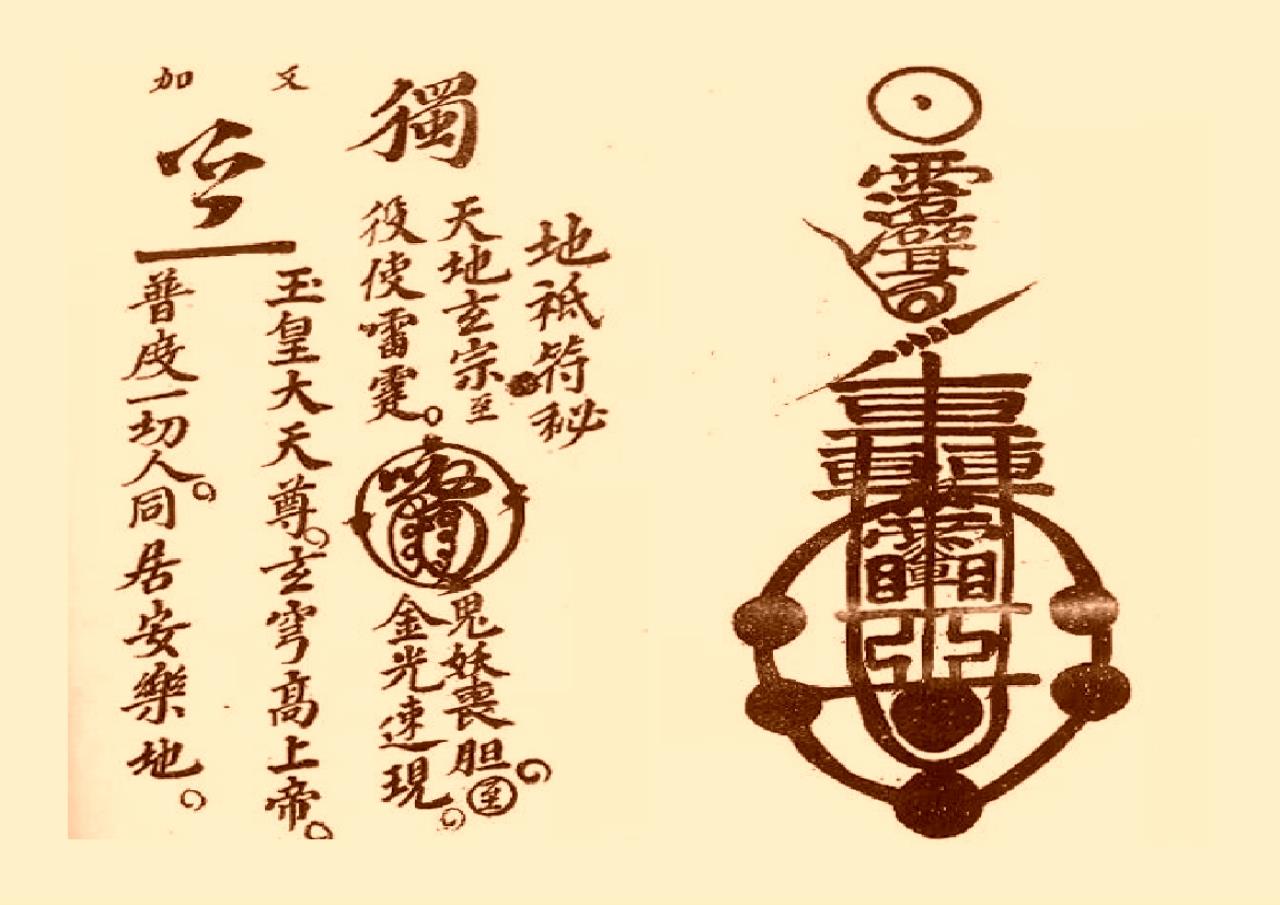 轟
地祇符秘
獨
天地玄宗至
役使雷霆。
鬼妖喪胆。至
金光速現。
又
加
玉皇大天尊。玄穹高上帝。
普度一切人。同居安樂地。